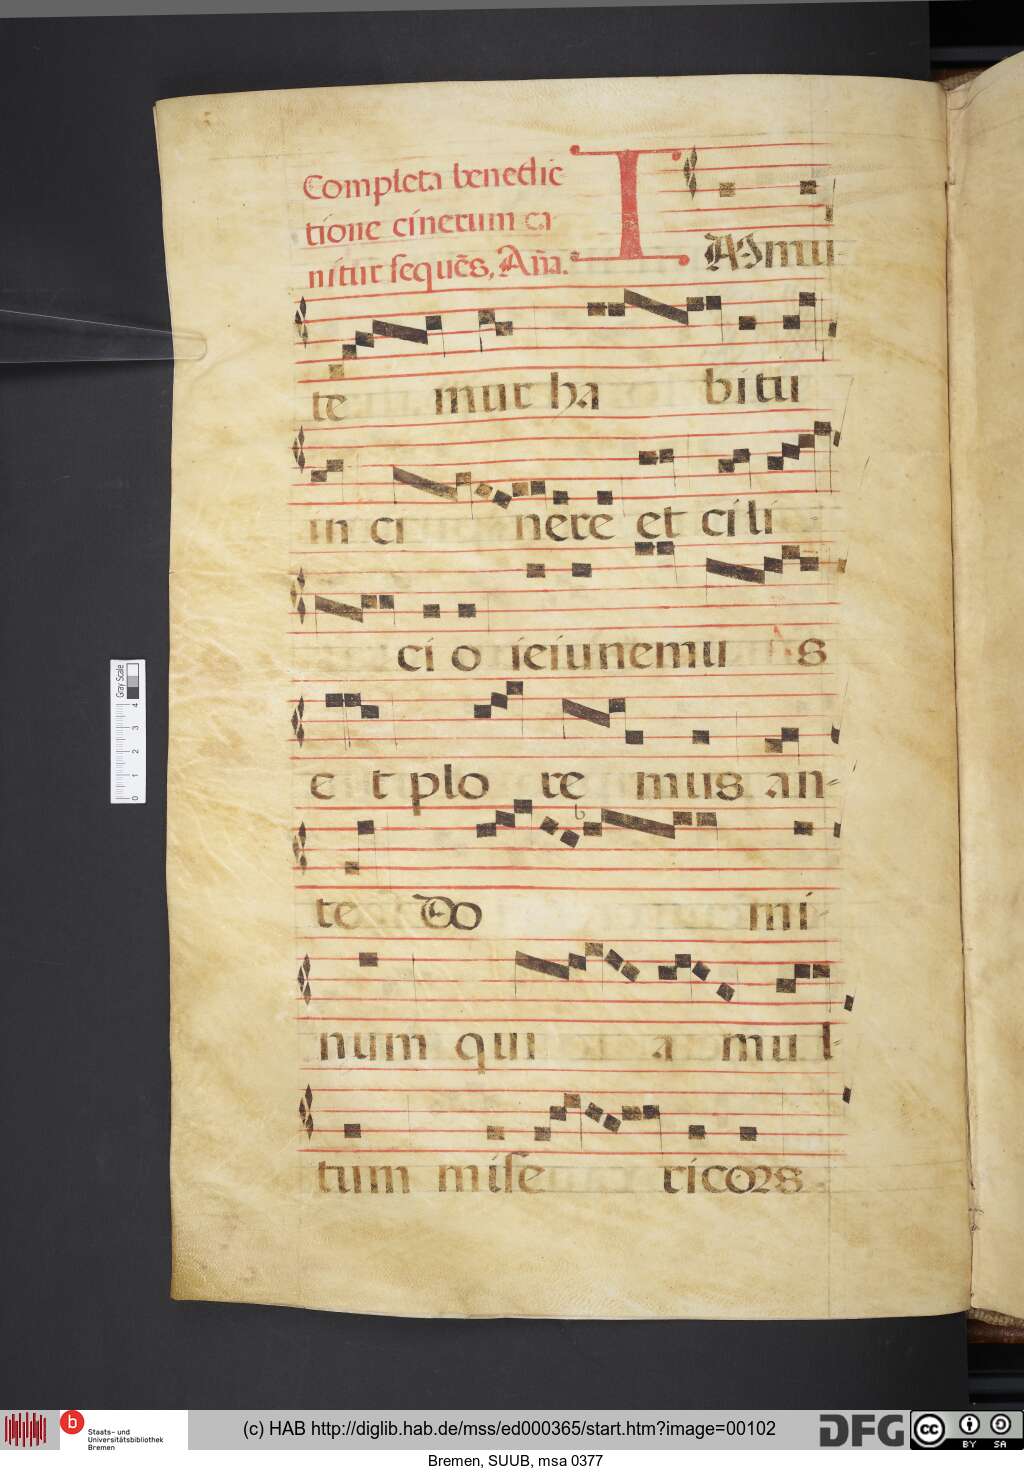 Completa benedic
tione cinerum ca
nitur sequēs, Añа.
IMmu
te mur ha bitu
in ci nere et cili
ci o ieiunemu s
e t plo re mus an-
te Do mi-
num qui a mul-
tum mise ricors
Gray Scale
0 1 2 3 4
b
Staats- und
Universitätsbibliothek
Bremen
(c) HAB http://diglib.hab.de/mss/ed000365/start.htm?image=00102
DFG
cc BY SA
Bremen, SUUB, msa 0377